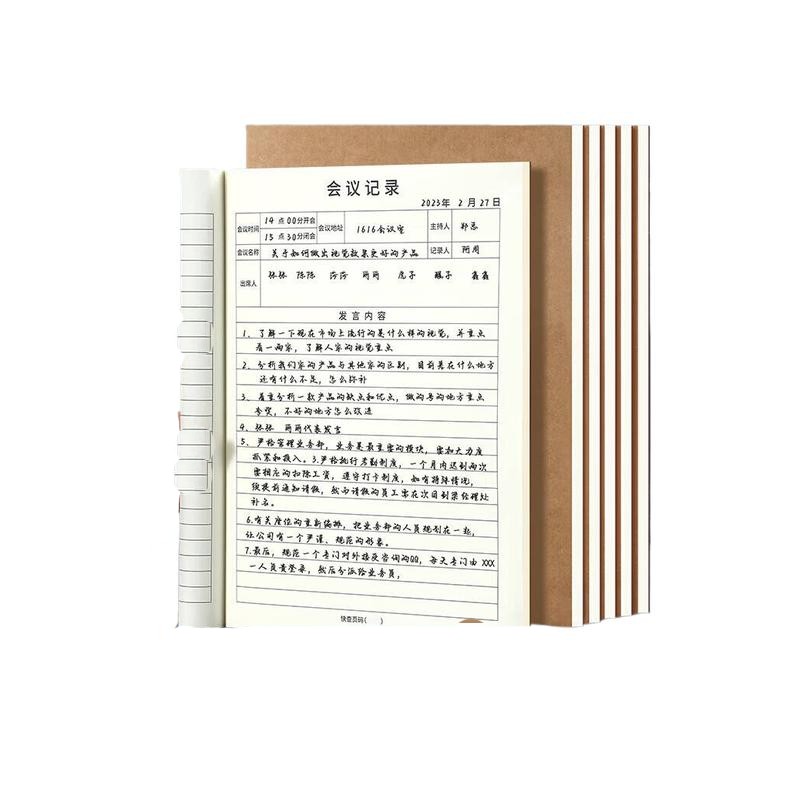 会议记录
2023年 2月27日
会议时间 14点00分开会 会议地址 1616会议室 主持人 郑总
15点30分闭会
会议名称 关于如何做出视觉效果更好的产品 记录人 阿周
出席人 张张 陈陈 莎莎 丽丽 虎子 鑫鑫
发言内容
1、了解一下现在市场上流行的是什么样的视觉，并重点
看一两家，了解人家的视觉重点
2、分析我们家的产品与其他家的区别，目前差在什么地方
还有什么不足，怎么弥补
3、着重分析一款产品的缺点和优点，做的好的地方重点
夸奖，不好的地方怎么改进
4、张张 丽丽代表发言
5、严格管理业务部，业务是最重要的模块，需加大力度
抓紧和投入。3.严格执行考勤制度，一个月内迟到两次
需相应的扣除工资，遵守打卡制度，如有特殊情况，
须提前通知请假，然而请假的员工需在次日到梁经理处
补名。
6.有关座位的重新编排，把业务部的人员规划在一起，
让公司有一个严谨、规范的形象。
7.最后，规范一个专门对外接受咨询的QQ，每天专门由XXX
一人员责登录，然后分派给业务员，
快查页码( )